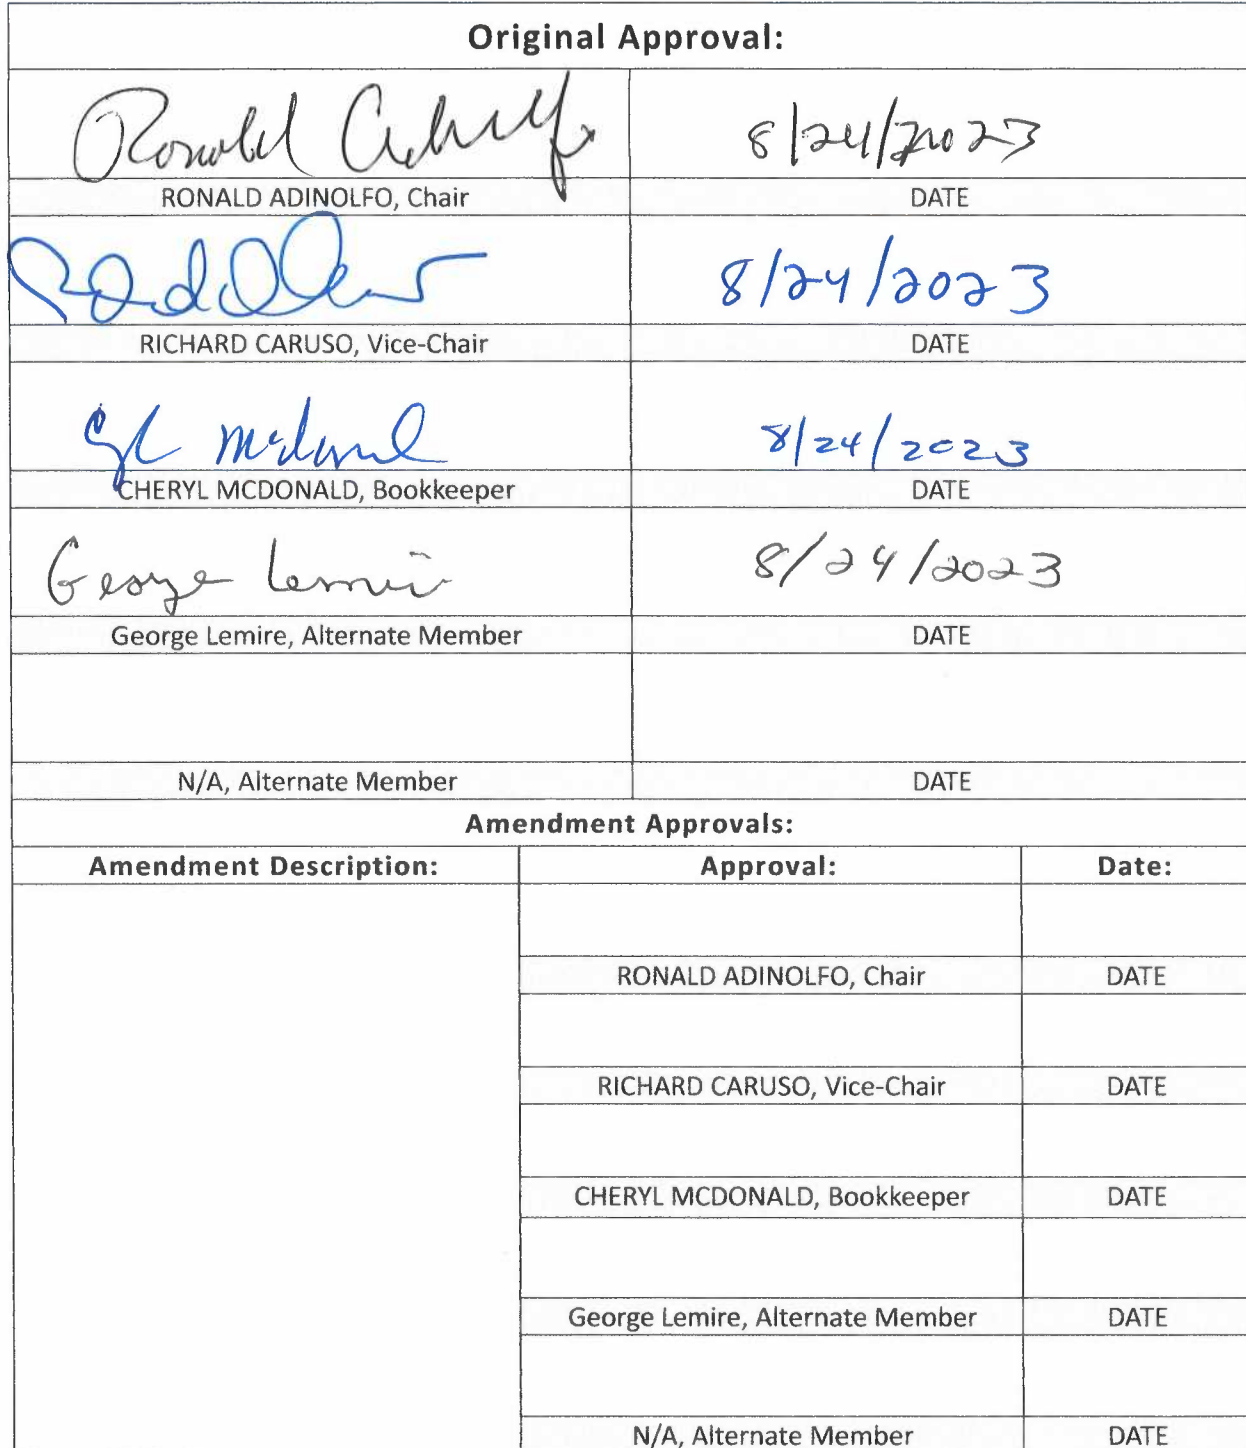 Original Approval:
Ronald Adinolfo 8/24/2023
RONALD ADINOLFO, Chair DATE
8/24/2023
RICHARD CARUSO, Vice-Chair DATE
8/24/2023
CHERYL MCDONALD, Bookkeeper DATE
George Lemire 8/24/2023
George Lemire, Alternate Member DATE
N/A, Alternate Member DATE
Amendment Approvals:
Amendment Description: Approval: Date:
RONALD ADINOLFO, Chair DATE
RICHARD CARUSO, Vice-Chair DATE
CHERYL MCDONALD, Bookkeeper DATE
George Lemire, Alternate Member DATE
N/A, Alternate Member DATE